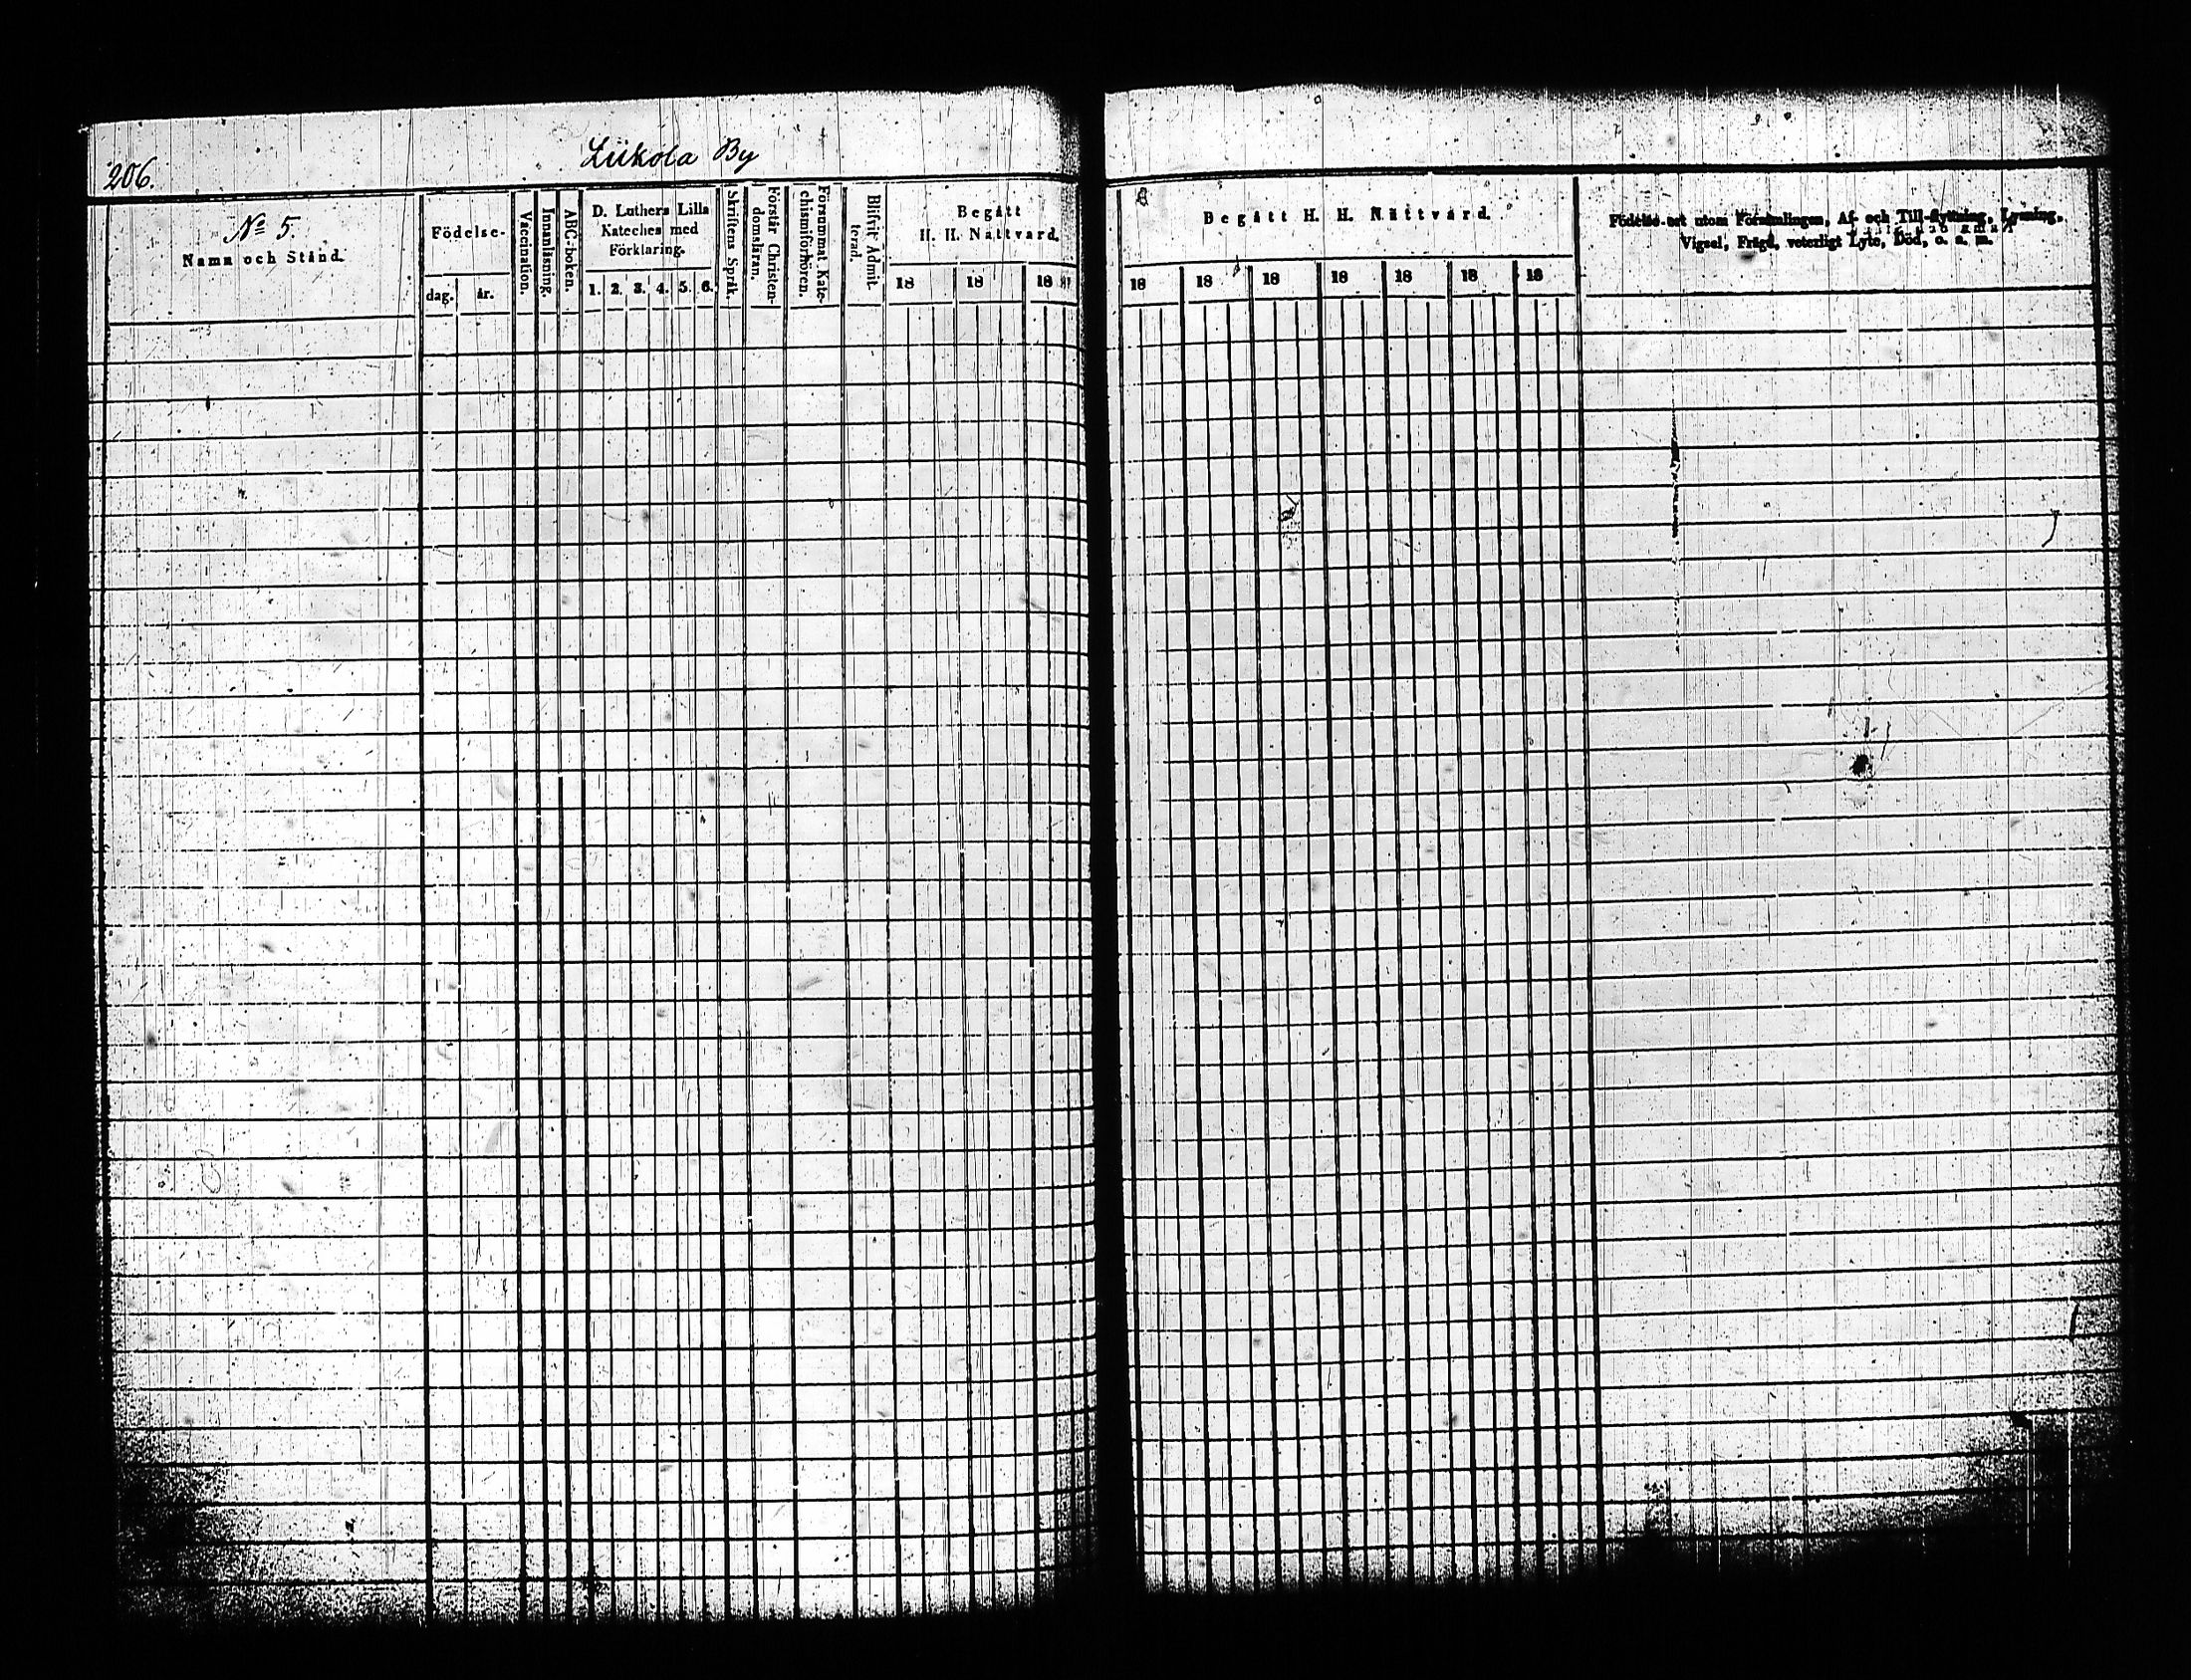 206.
Liikola By
Nº 5.
Namn och Stånd.
Födelse-
dag.
år.
Vaccination.
Innanläsning.
ABC-boken.
D. Luthers Lilla
Kateches med
Förklaring.
1. 2. 3. 4. 5. 6.
Skriftens Språk.
Förstår Christen-
domsläran.
Försummat Kate-
chismiförhören.
Blifvit Admit-
terad.
Begått
H. H. Nattvard.
18 18 18
Begått H. H. Nattvard.
18 18 18 18 18 18 18
Födelse-ort utom Församlingen, Af- och Till-flyttning, Lysning,
Vigsel, Frägd, veterligt Lyte, Död, o. s. m.